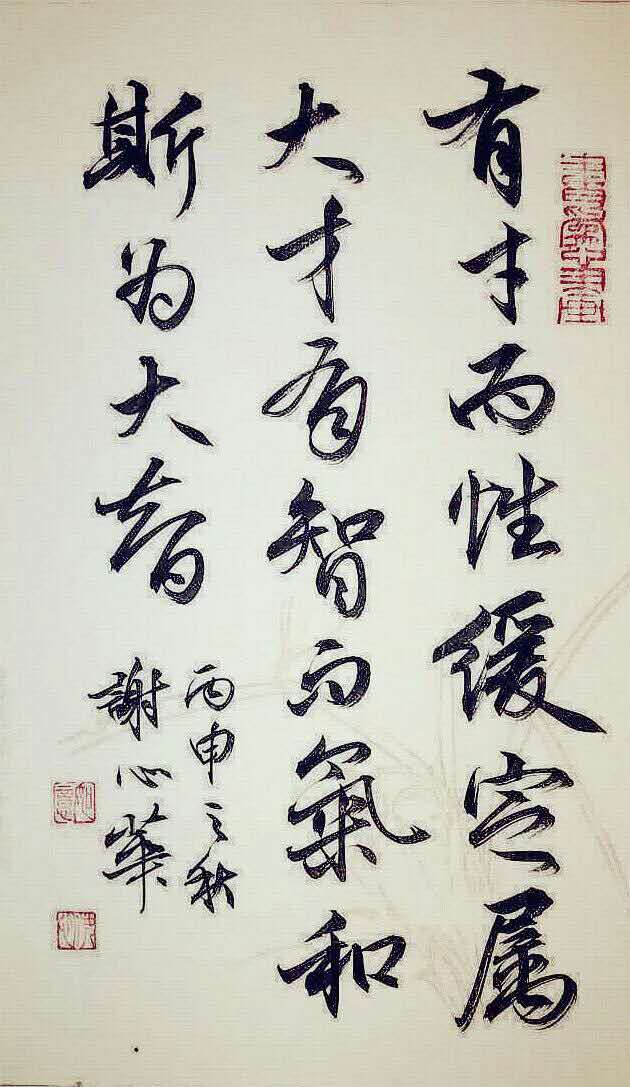 有才而性缓定属
大才有智而氣和
斯为大智
丙申之秋
謝心華